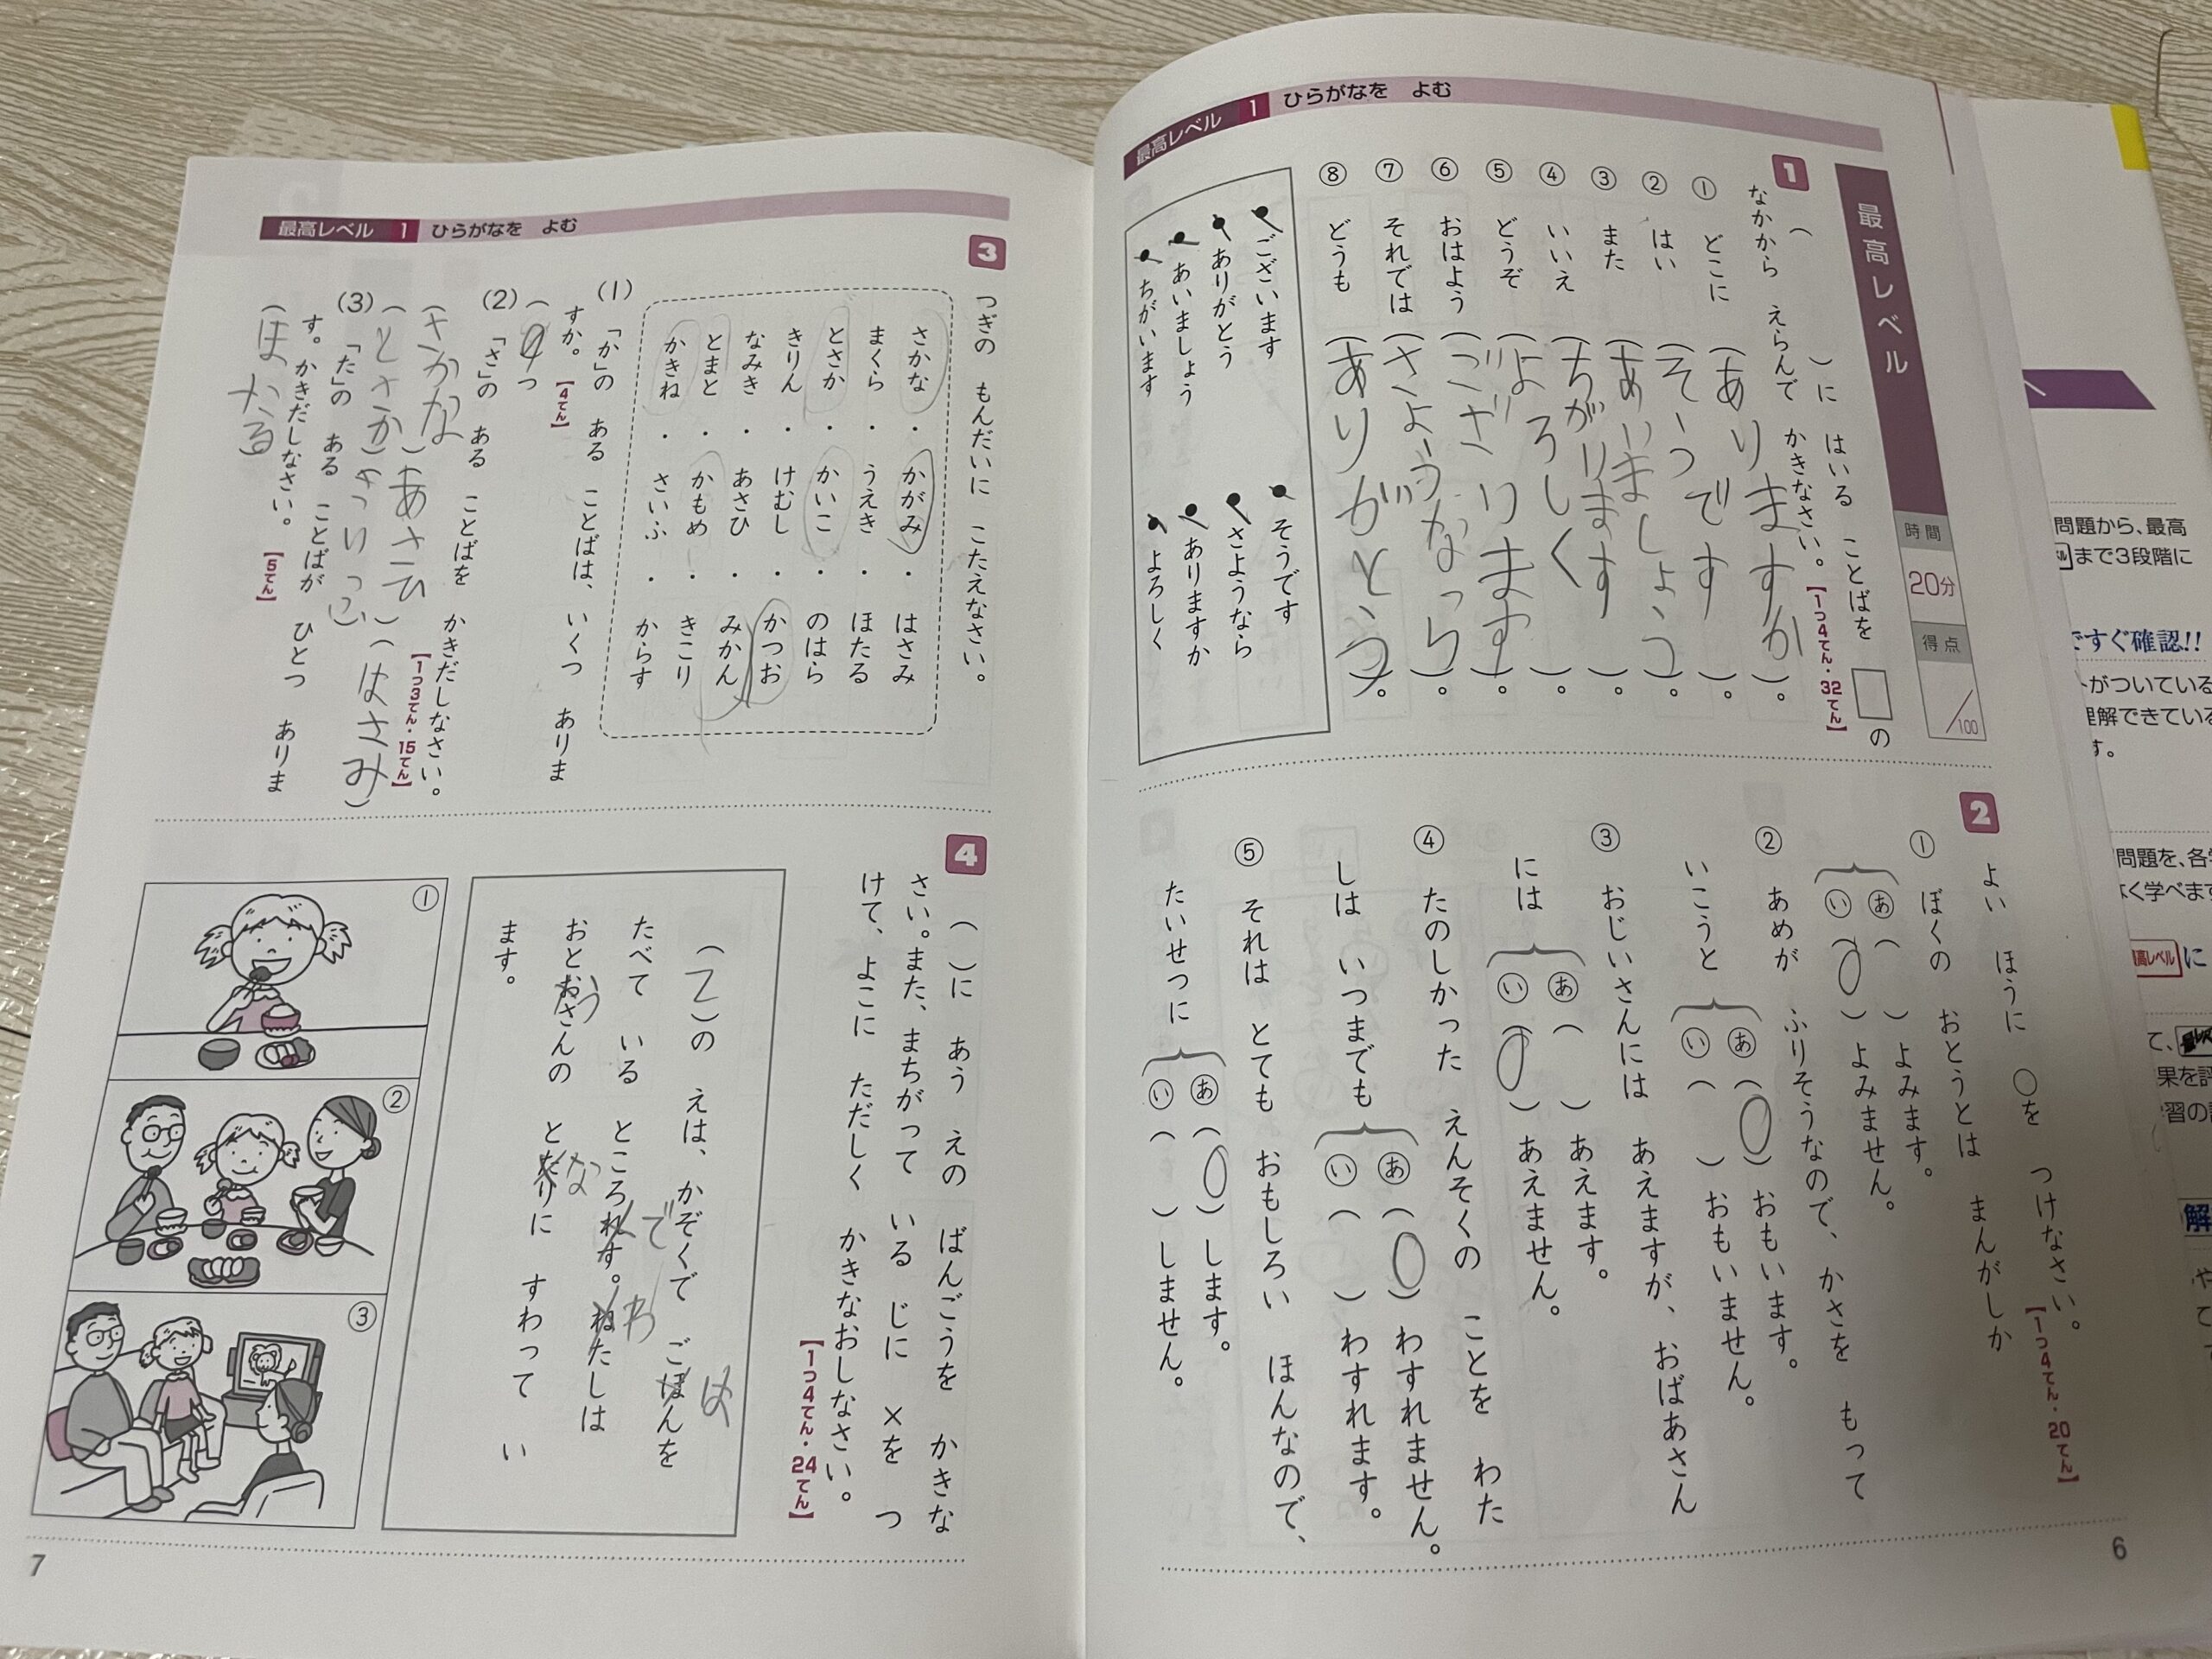 最高レベル 1 ひらがなを よむ
最高レベル
時間
20分
得点
/100
1
( )に はいる ことばを □の
なかから えらんで かきなさい。【1つ4てん・32てん】
① どこに (ありますか)。
② はい (そうです)。
③ また (あいましょう)。
④ いいえ (ちがります)。
⑤ どうぞ (よろしく)。
⑥ おはよう (ございます)。
⑦ それでは (さようなら)。
⑧ どうも (ありがとう)。
ございます
そうです
ありがとう
さようなら
あいましょう
ありますか
ちがいます
よろしく
2
よい ほうに ○を つけなさい。【1つ4てん・20てん】
① ぼくの おとうとは まんがしか
あ( )よみます。
い(○)よみません。
② あめが ふりそうなので、かさを もって
いこうと
あ(○)おもいます。
い( )おもいません。
③ おじいさんには あえますが、おばあさん
には
あ( )あえます。
い(○)あえません。
④ たのしかった えんそくの ことを わた
しは いつまでも
あ(○)わすれません。
い( )わすれます。
⑤ それは とても おもしろい ほんなので、
たいせつに
あ(○)します。
い( )しません。
6
最高レベル 1 ひらがなを よむ
3
つぎの もんだいに こたえなさい。
さかな・かがみ・はさみ
まくら・うえき・ほたる
とさか・かいこ・のはら
きりん・けむし・かつお
なみき・あさひ・みかん
とまと・かもめ・きこり
かきね・さいふ・からす
(1) 「か」の ある ことばは、いくつ ありま
すか。【4てん】
(9)つ
(2) 「さ」の ある ことばを かきだしなさい。
【1つ3てん・15てん】
(さかな)(あさひ)(はさみ)
(とさか)
(3) 「た」の ある ことばが ひとつ ありま
す。かきだしなさい。【5てん】
(ほたる)
4
( )に あう えの ばんごうを かきな
さい。また、まちがって いる じに ×を つ
けて、よこに ただしく かきなおしなさい。
【1つ4てん・24てん】
(2)の えは、かぞくで ごほんを
は
たべて いる ところれす。ねたしは
で
わ
おとおさんの とたりに すわって い
う
な
ます。
①
②
③
7
問題から、最高
まで3段階に
ですぐ確認!!
がついている
理解できている
す。
問題を、各
に
解